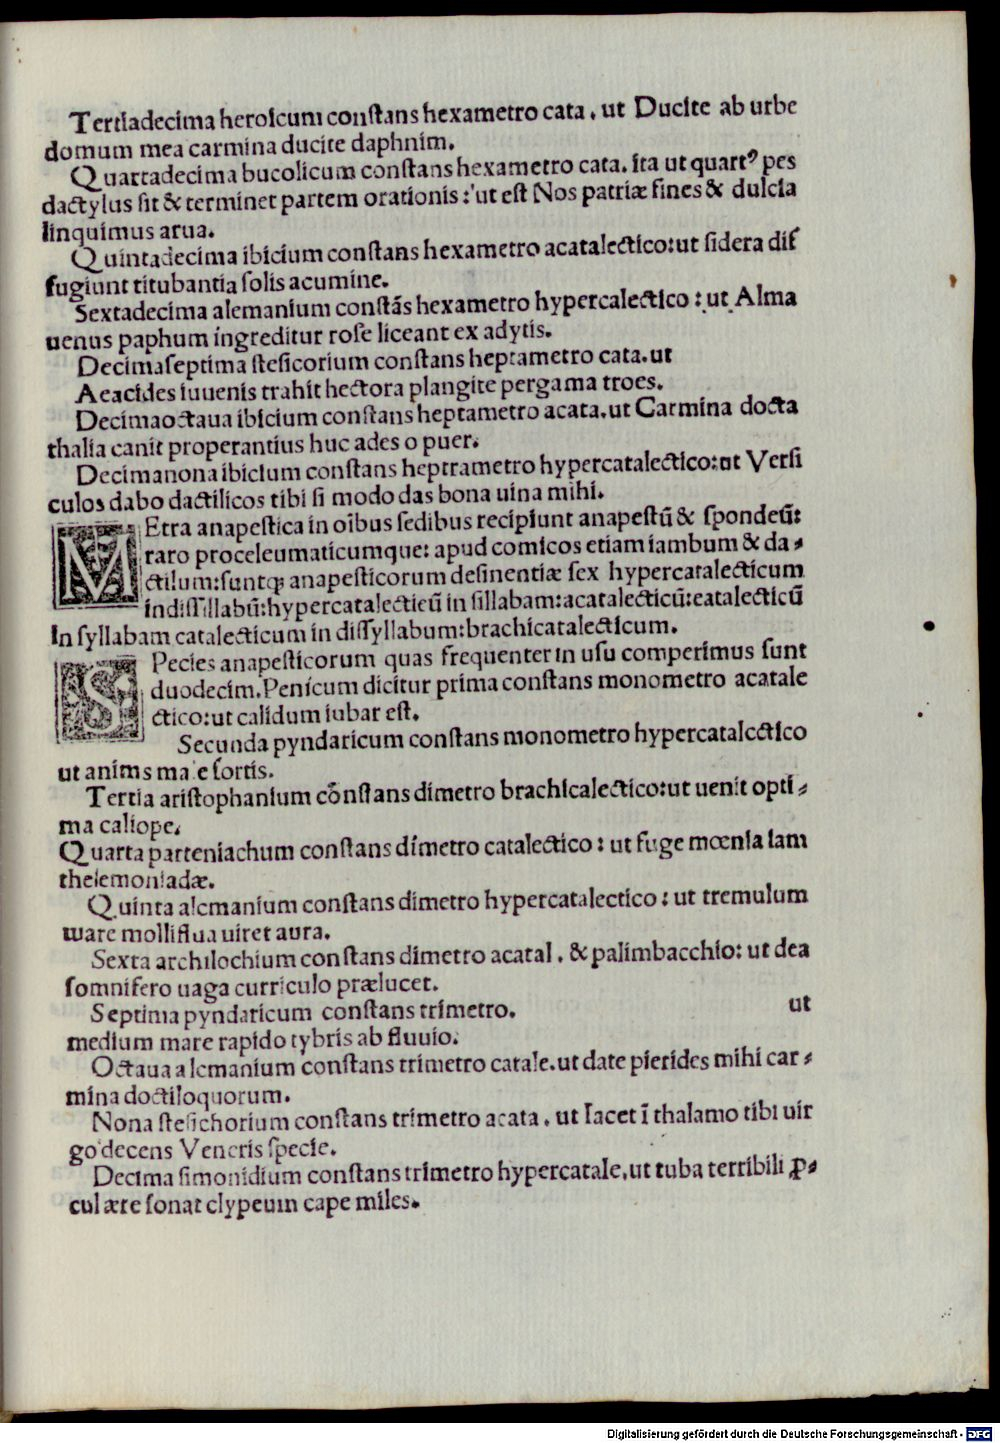 Tertiadecima heroicum conſtans hexametro cata. ut Ducite ab urbe
domum mea carmina ducite daphnim.
Quartadecima bucolicum conſtans hexametro cata. ita ut quartꝰ pes
dactylus ſit & terminet partem orationis: ut eſt Nos patriæ fines & dulcia
linquimus arua.
Quintadecima ibicium conſtans hexametro acatalectico: ut ſidera diſ
fugiunt titubantia ſolis acumine.
Sextadecima alemanium conſtãs hexametro hypercalectico: ut Alma
uenus paphum ingreditur roſe liceant ex adytis.
Decimaſeptima ſteſicorium conſtans heptametro cata. ut
Aeacides iuuenis trahit hectora plangite pergama troes.
Decimaoctaua ibicium conſtans heptametro acata. ut Carmina docta
thalia canit properantius huc ades o puer.
Decimanona ibicium conſtans heptrametro hypercatalectico: ut Verſi
culos dabo dactilicos tibi ſi modo das bona uina mihi.
MEtra anapeſtica in oĩbus ſedibus recipiunt anapeſtũ & ſpondeũ:
raro proceleumaticumque: apud comicos etiam iambum & da⸗
ctilum: ſuntqꝫ anapeſticorum deſinentiæ ſex hypercatalecticum
in diſſillabũ: hypercatalecticũ in ſillabam: acatalecticũ: catalecticũ
In ſyllabam catalecticum in diſſyllabum: brachicatalecticum.
SPecies anapeſticorum quas frequenter in uſu comperimus ſunt
duodecim. Penicum dicitur prima conſtans monometro acatale
ctico: ut calidum iubar eſt.
Secunda pyndaricum conſtans monometro hypercatalectico
ut anims ma e fortis.
Tertia ariſtophanium cõnſtans dimetro brachicalectico: ut uenit opti⸗
ma caliope.
Quarta parteniachum conſtans dimetro catalectico: ut fuge mœnia iam
thelemoniadæ.
Quinta alcmanium conſtans dimetro hypercatalectico: ut tremulum
mare molliflua uiret aura.
Sexta archilochium conſtans dimetro acatal. & palimbacchio: ut dea
ſomnifero uaga curriculo prælucet.
Septima pyndaricum conſtans trimetro. ut
medium mare rapido tybris ab fluuio.
Octaua alcmanium conſtans trimetro catale. ut date pierides mihi car⸗
mina doctiloquorum.
Nona ſteſichorium conſtans trimetro acata. ut Iacet ĩ thalamo tibi uir
go decens Veneris ſpecie.
Decima ſimonidium conſtans trimetro hypercatale. ut tuba terribili ꝓ⸗
cul ære ſonat clypeum cape miles.
Digitalisierung gefördert durch die Deutsche Forschungsgemeinschaft - DFG